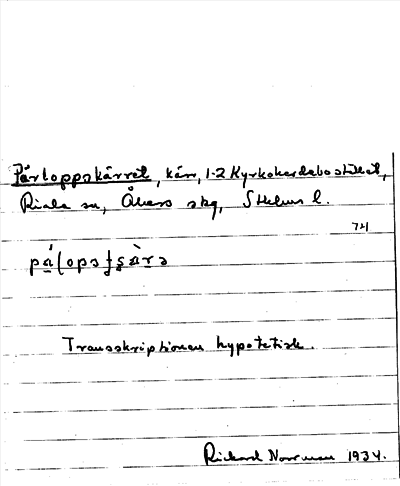 Pärloppskärret, kärr, 1-2 Kyrkokardebostället,
Riala sn, Åkers skg, Sthlms l.
721
Transskriptionen hypotetisk.
Rickard Norrman 1934.